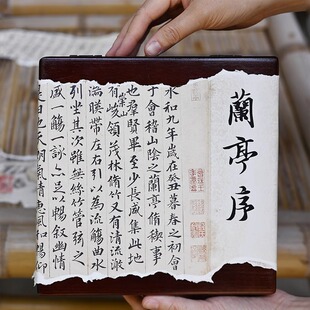 蘭亭序
永和九年歲在癸丑暮春之初會
于會稽山陰之蘭亭脩稧事
也羣賢畢至少長咸集此地
有崇山峻領茂林脩竹又有清流激
湍暎帶左右引以為流觴曲水
列坐其次雖無絲竹管弦之
盛一觴一詠亦足以暢叙幽情
是日也天朗氣清惠風和暢仰